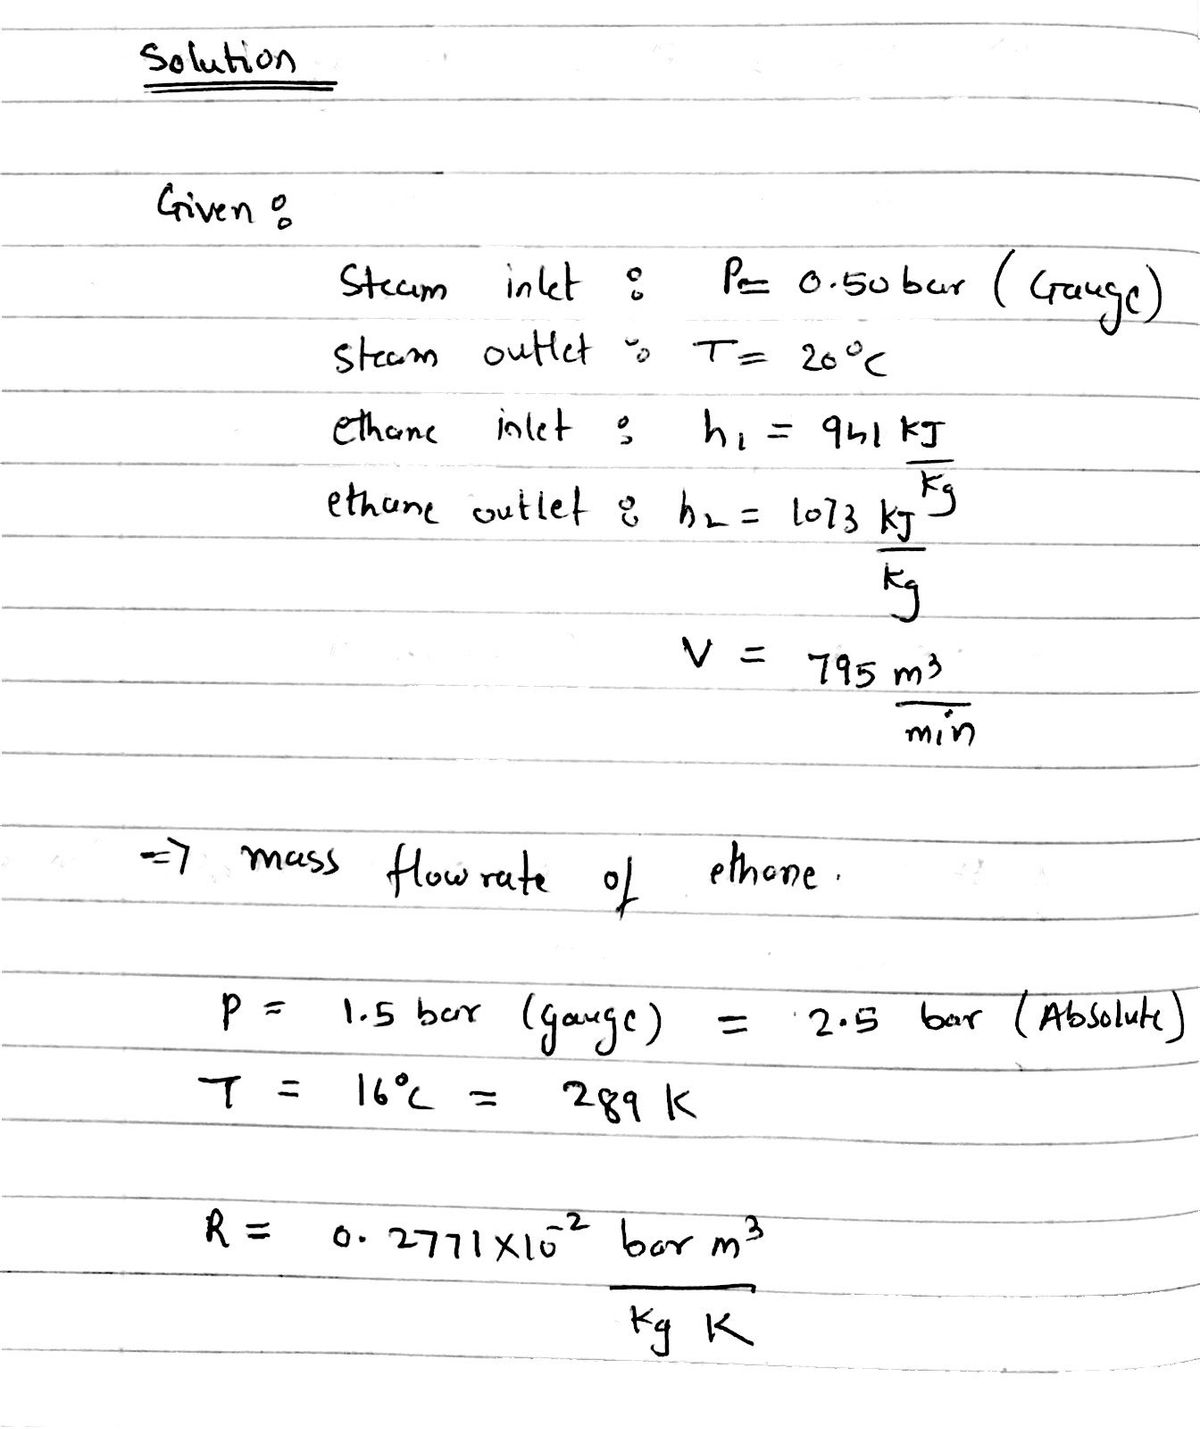 Solution
Given :
Steam inlet : P= 0.50 bar ( Gauge)
Steam outlet : T= 20°C
ethane inlet : h₁ = 941 KJ
Kg
ethane outlet : h₂ = 1073 KJ
Kg
V = 795 m³
min
=> mass flowrate of ethane.
P = 1.5 bar (gauge) = 2.5 bar (Absolute)
T = 16°C = 289 K
R = 0.2771×10⁻² bar m³
Kg K